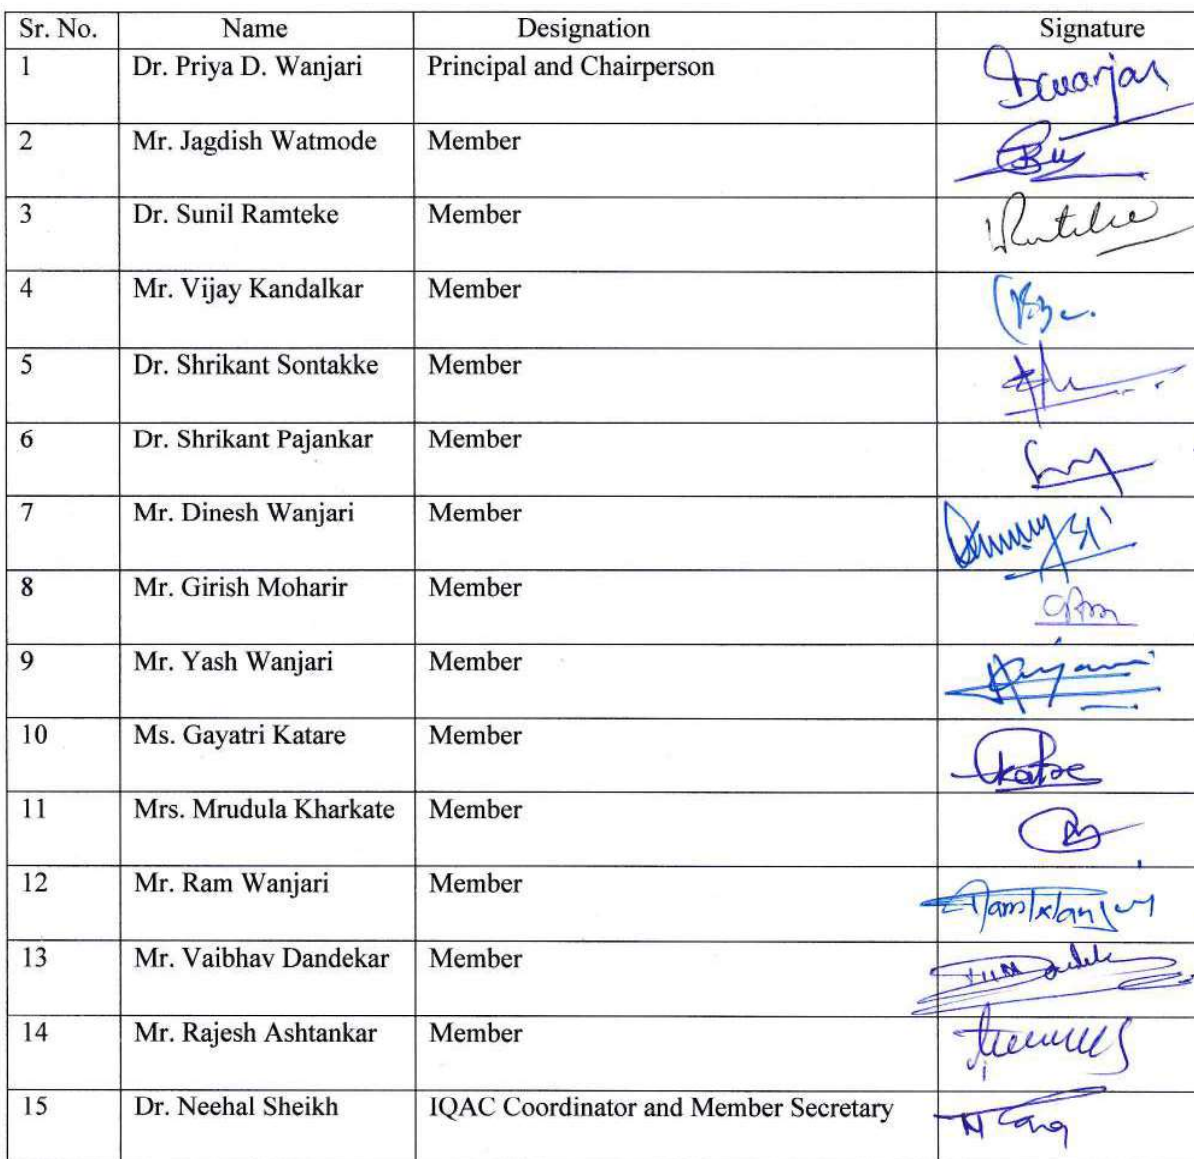 Sr. No. Name Designation Signature
1 Dr. Priya D. Wanjari Principal and Chairperson
2 Mr. Jagdish Watmode Member
3 Dr. Sunil Ramteke Member
4 Mr. Vijay Kandalkar Member
5 Dr. Shrikant Sontakke Member
6 Dr. Shrikant Pajankar Member
7 Mr. Dinesh Wanjari Member
8 Mr. Girish Moharir Member
9 Mr. Yash Wanjari Member
10 Ms. Gayatri Katare Member
11 Mrs. Mrudula Kharkate Member
12 Mr. Ram Wanjari Member
13 Mr. Vaibhav Dandekar Member
14 Mr. Rajesh Ashtankar Member
15 Dr. Neehal Sheikh IQAC Coordinator and Member Secretary